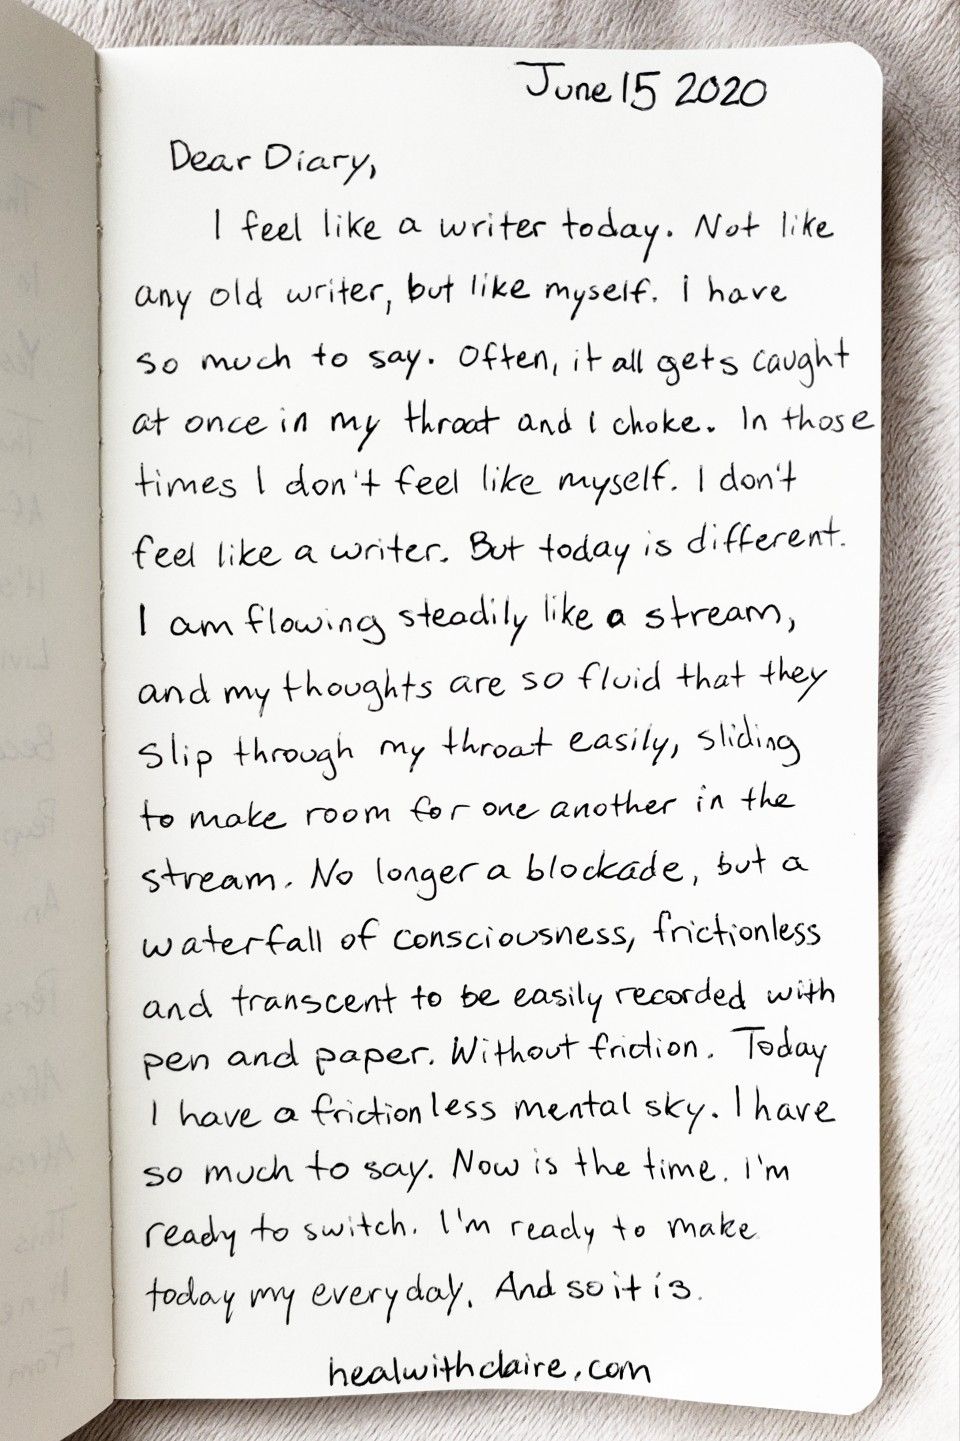 June 15 2020
Dear Diary,
I feel like a writer today. Not like
any old writer, but like myself. I have
so much to say. Often, it all gets caught
at once in my throat and I choke. In those
times I don't feel like myself. I don't
feel like a writer. But today is different.
I am flowing steadily like a stream,
and my thoughts are so fluid that they
slip through my throat easily, sliding
to make room for one another in the
stream. No longer a blockade, but a
waterfall of consciousness, frictionless
and transcent to be easily recorded with
pen and paper. Without friction. Today
I have a frictionless mental sky. I have
so much to say. Now is the time. I'm
ready to switch. I'm ready to make
today my everyday. And so it is.
healwithclaire.com